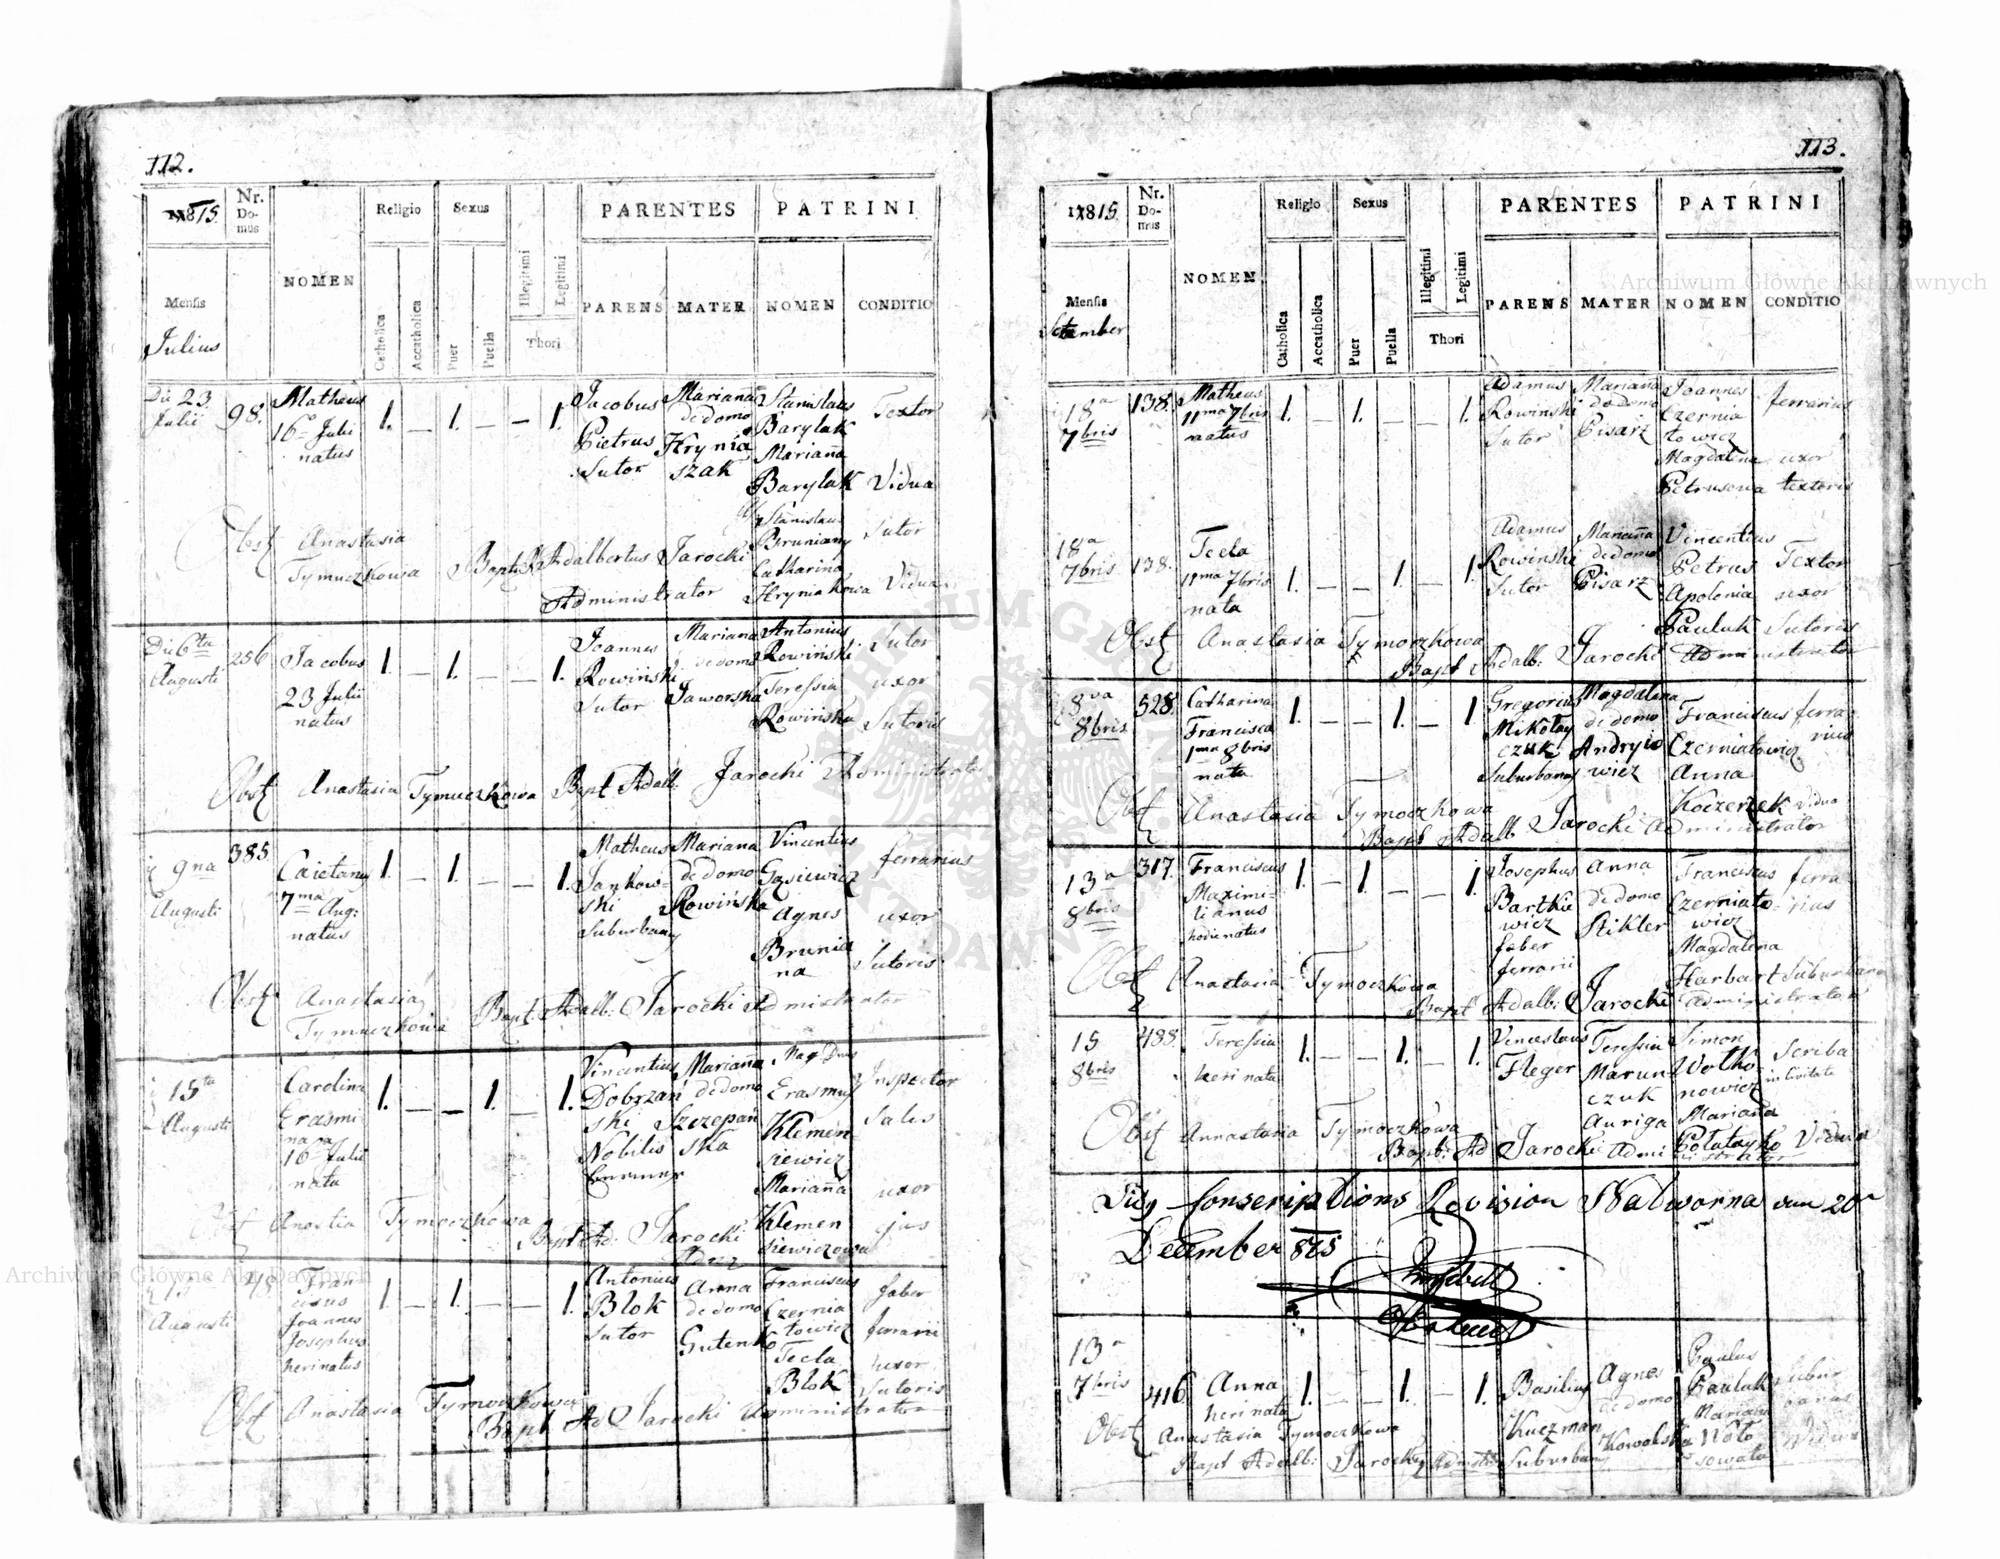 112.
1815.
Nr.
Do-
mus
Religio
Sexus
PARENTES
PATRINI
Mensis
Julius
NOMEN
Catholica
Accatholica
Puer
Puella
Illegitimi
Legitimi
Thori
PARENS
MATER
NOMEN
CONDITIO
Die 23
Julii
98.
Matheus
16 Julii
natus
1. — 1. — — 1.
Jacobus
Pietrus
Sutor
Mariana
de domo
Hrynia
szak
Stanislaus
Barylak
Mariana
Barylak
Textor
Vidua
Stanislaus
Bruniany
Catharina
Hryniakowa
Sutor
Vidua
Obst Anastasia
Tymuczkowa
Adalbertus Jarocki
Administrator
Die 6ta
Augusti
256
Jacobus
23 Julii
natus
1. — 1. — — 1.
Joannes
Rowinski
Sutor
Mariana
de domo
Jaworska
Antonius
Rowiński
Teressia
Rowińska
Sutor
uxor
Sutoris
Obst Anastasia Tymuczkowa Bapt Adalb: Jarocki Administrator
9na
Augusti
385
Caietany
7ma Aug:
natus
1. — 1. — — 1.
Matheus
Jankow-
ski
Suburbany
Mariana
de domo
Rowińska
Vincentius
Gasiewicz
Agnes
Brunia
na
ferrarius
uxor
Sutoris
Obst Anastasia
Tymuczkowa
Bapt: Adalb: Jarocki Admistrator
15ta
Augusti
Carolina
Erasmi
na
16 Julii
nata
1. — — 1. — 1.
Vincentius
Dobrzań
ski
Nobilis
Mariana
de domo
Szczepań
ska
Erasmy
Klemen-
siewicz
Mariana
Klemen
siewiczowa
Inspector
Salis
uxor
ejus
Tymoczkowa
Bapt Ad: Jarocki
15
Augusti
48
Fran
ciscus
Joannes
Josephus
heri natus
1. — 1. — — 1.
Antonius
Blok
Sutor
Anna
de domo
Gutenko
Franciscus
Czernia
towicz
Tecla
Blok
faber
ferrarii
uxor
Sutoris
Obst Anastasia Tymoczkowa
Bapt Ad Jarocki Administrator
113.
1815
Nr.
Do-
mus
Religio
Sexus
PARENTES
PATRINI
Mensis
NOMEN
Catholica
Accatholica
Puer
Puella
Illegitimi
Legitimi
Thori
PARENS
MATER
NOMEN
CONDITIO
18a
7bris
138.
Matheus
11ma 7bris
natus
1. — 1. — 1.
Adamus
Rowinski
Sutor
Mariana
de domo
Pisarz
Joannes
Czernia
towicz
Magdalena
Petrusowa
ferrarius
uxor
textoris
18a
7bris
138.
Tecla
11ma 7bris
nata
1. — — 1. — 1.
Adamus
Rowinski
Sutor
Mariana
de domo
Pisarz
Vincentius
Petrus
Apolonia
Pauluk
Textor
uxor
Sutoris
Obst Anastasia Tymoczkowa
Bapt Adalb: Jarocki Administrator
8va
8bris
528.
Catharina
Francisca
1ma 8bris
nata
1. — — 1. — 1.
Gregorius
Mikołay
czuk
Suburbany
Magdalena
de domo
Andryio
wicz
Franciscus
Czerniatowicz
Anna
Koczerzek
ferra-
rius
Vidua
Obst Anastasia Tymoczkowa
Bapt Adalb Jarocki Administrator
13a
8bris
317.
Franciscus
Maximi-
lianus
hodie natus
1. — 1. — — 1.
Josephus
Bartkie
wicz
faber
ferrarii
Anna
de domo
Stikler
Franciscus
Czerniato-
wicz
Magdalena
Harbart
ferra
rius
Obst Anastasia Tymoczkowa
Bapt Adalb: Jarocki Administrator
15
8bris
488.
Teressia
heri nata
1. — — 1. — 1.
Venceslaus
Fleger
Teressia
Marun
czuk
Auriga
Simon
Wołko
nowicz
Mariana
Scriba
in Civitate
Vidua
Obst Annastasia Tymoczkowa
Bapt: Ad Jarocki Administrator
Conscriptions Revision Nadworna am 20
December 815
13a
7bris
416
Anna
heri nata
1. — — 1. — 1.
Basilius
Kuczman
Suburbany
Agnes
de domo
Kowalska
Paulus
Pauluk
Mariana
Vidua
Obst Anastasia Tymoczkowa
Bapt Adalb: Jarocki
Archiwum Główne Akt Dawnych
Archiwum Główne Akt Dawnych
ARCHIWUM GŁÓWNE AKT DAWNYCH